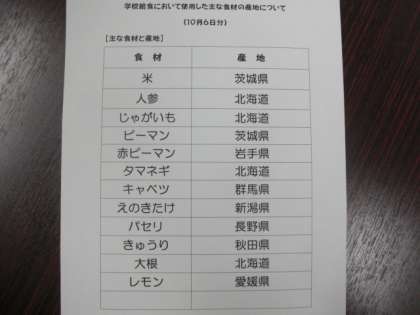 学校給食において使用した主な食材の産地について
(10月6日分)
【主な食材と産地】
食 材 産 地
米 茨城県
人参 北海道
じゃがいも 北海道
ピーマン 茨城県
赤ピーマン 岩手県
タマネギ 北海道
キャベツ 群馬県
えのきたけ 新潟県
パセリ 長野県
きゅうり 秋田県
大根 北海道
レモン 愛媛県